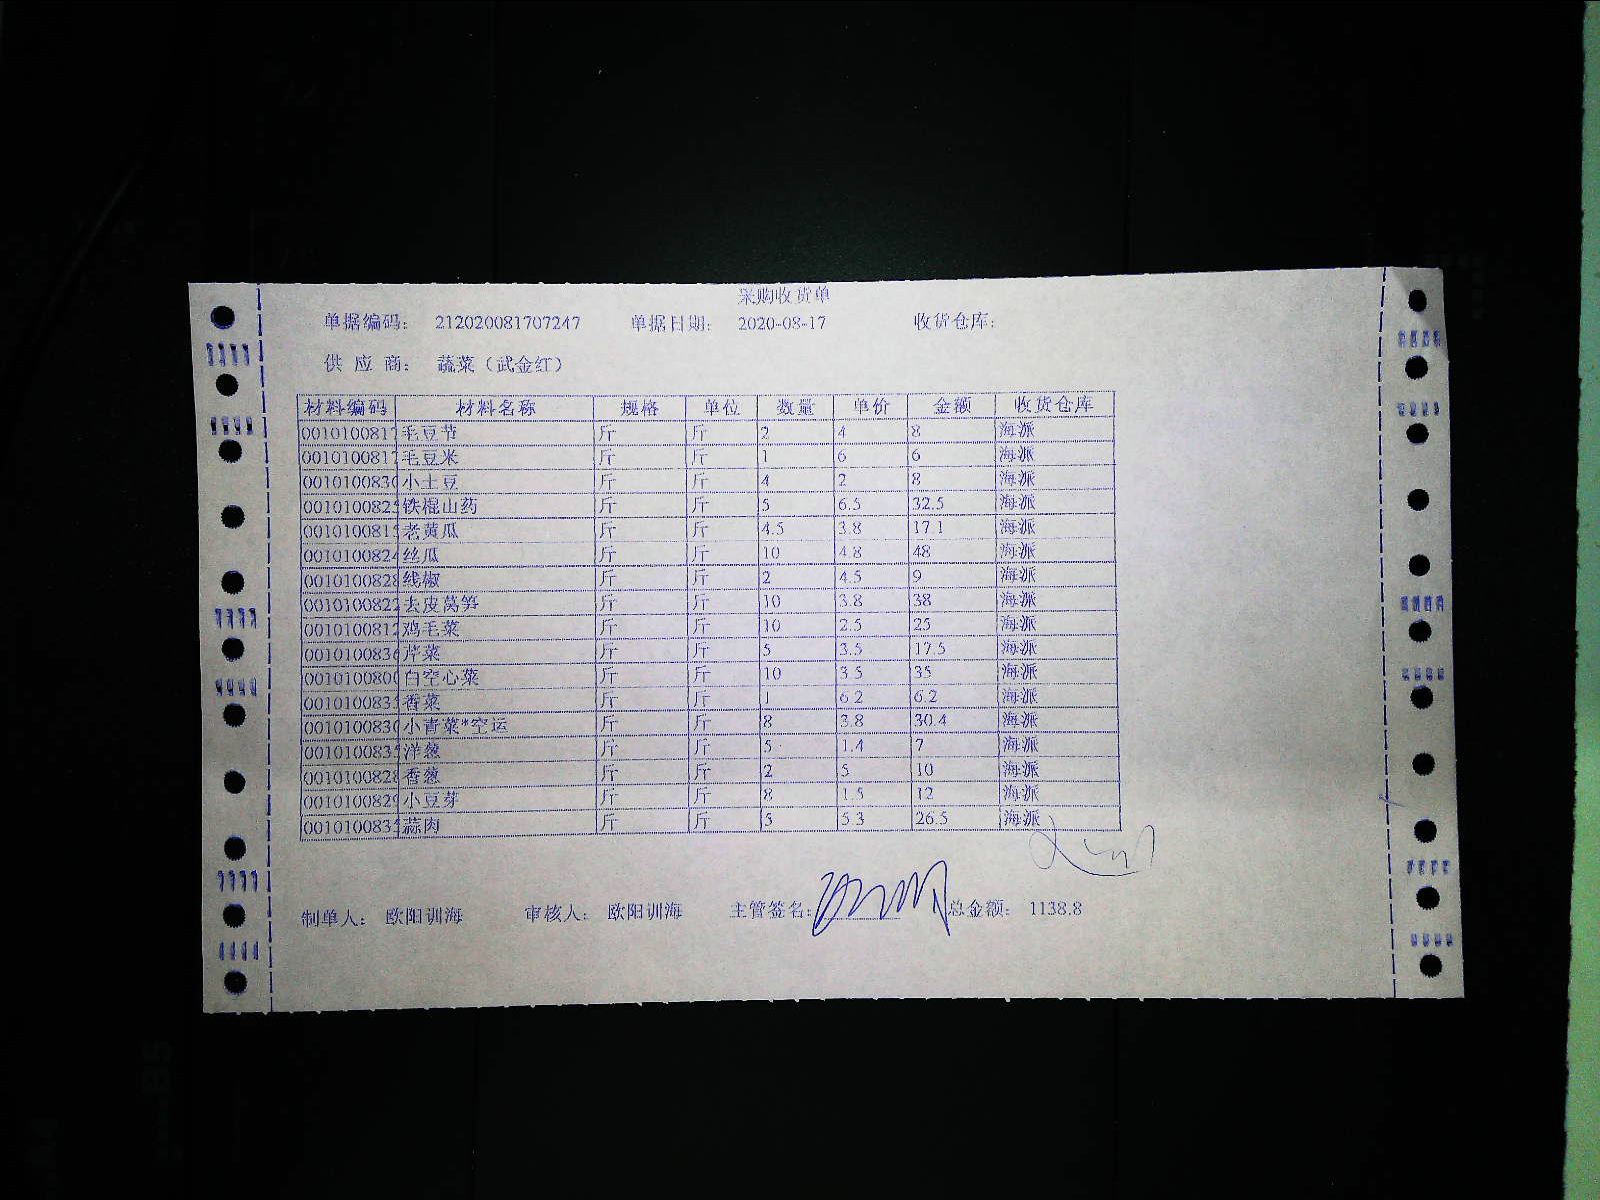 采购收货单
单据编码: 212020081707247 单据日期: 2020-08-17 收货仓库:
供 应 商: 蔬菜（武金红）
材料编码 材料名称 规格 单位 数量 单价 金额 收货仓库
0010100817 毛豆节 斤 斤 2 4 8 海派
0010100817 毛豆米 斤 斤 1 6 6 海派
0010100830 小土豆 斤 斤 4 2 8 海派
0010100825 铁棍山药 斤 斤 5 6.5 32.5 海派
0010100815 老黄瓜 斤 斤 4.5 3.8 17.1 海派
0010100824 丝瓜 斤 斤 10 4.8 48 海派
0010100828 线椒 斤 斤 2 4.5 9 海派
0010100822 去皮莴笋 斤 斤 10 3.8 38 海派
0010100812 鸡毛菜 斤 斤 10 2.5 25 海派
0010100836 芹菜 斤 斤 5 3.5 17.5 海派
0010100800 白空心菜 斤 斤 10 3.5 35 海派
0010100833 香菜 斤 斤 1 6.2 6.2 海派
0010100830 小青菜*空运 斤 斤 8 3.8 30.4 海派
0010100835 洋葱 斤 斤 5 1.4 7 海派
0010100828 香葱 斤 斤 2 5 10 海派
0010100829 小豆芽 斤 斤 8 1.5 12 海派
0010100835 蒜肉 斤 斤 5 5.3 26.5 海派
制单人: 欧阳训海 审核人: 欧阳训海 主管签名: 总金额: 1138.8